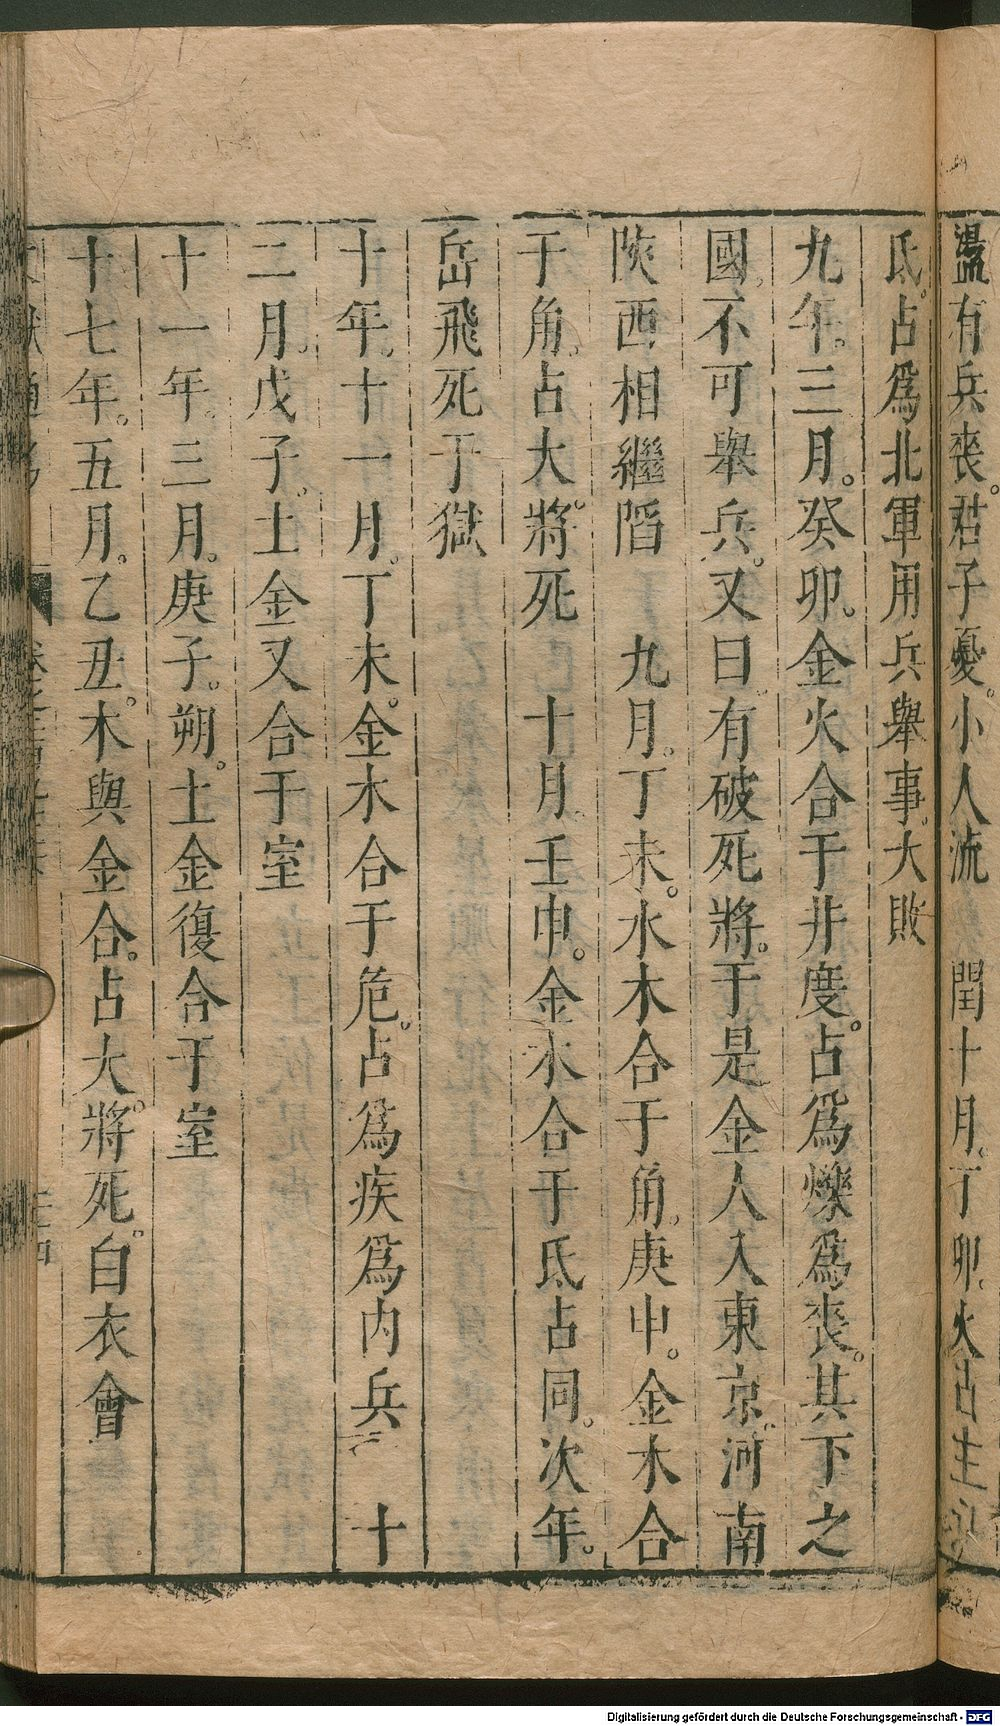 盪有兵喪。君子憂。小人流　閏十月。丁卯。火
氐占爲北軍用兵舉事大敗
九年。三月。癸卯。金火合于井度。占爲爍爲喪。其下之
國。不可舉兵。又曰。有破死將。于是金人入東京。河南
陝西相繼陷　九月。丁未。水木合于角。庚申。金木合
于角。占大將死　十月。壬申。金水合于氐占同。次年。
岳飛死于獄
十年。十一月。丁未。金水合于危。占爲疾爲内兵　十
二月。戊子。土金又合于室
十一年。三月。庚子。朔。土金復合于室
十七年。五月。乙丑。木與金合。占大將死。白衣會
Digitalisierung gefördert durch die Deutsche Forschungsgemeinschaft - DFG